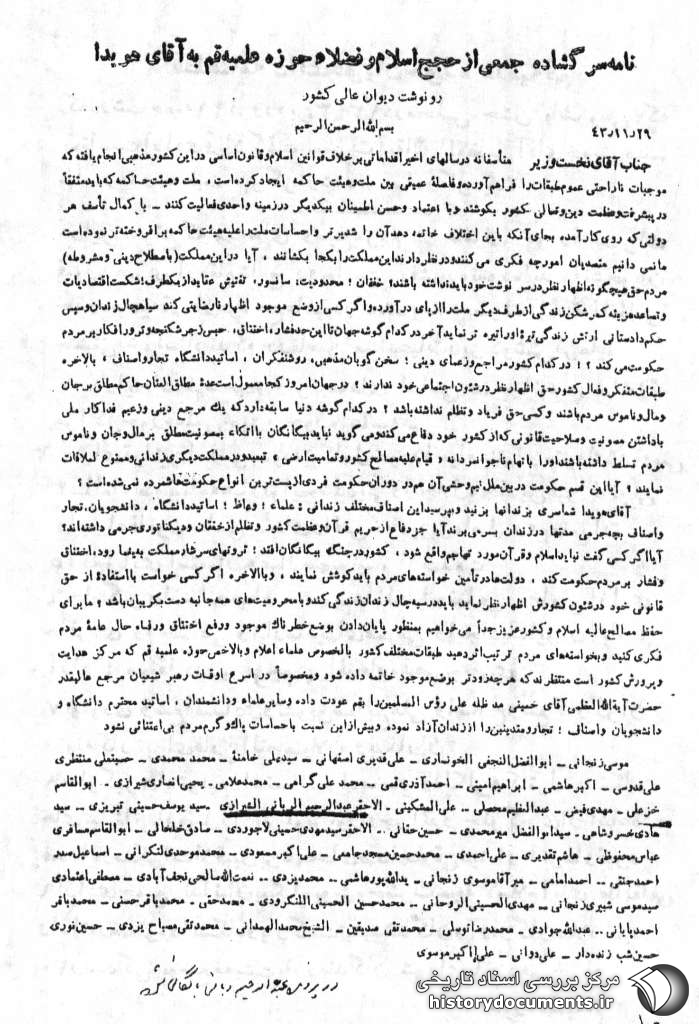 نامه سرگشاده جمعی از حجج اسلام و فضلاء حوزه علمیه قم به آقای هویدا
رونوشت دیوان عالی کشور
بسم الله الرحمن الرحیم
۴۳٫۱۱٫۲۹
جناب آقای نخست وزیر متأسفانه در سالهای اخیر اقداماتی برخلاف قوانین اسلام و قانون اساسی در این کشور مذهبی انجام یافته که
موجبات ناراحتی عموم طبقات را فراهم آورده و فاصلهٔ عمیقی بین ملت و هیئت حاکمه ایجاد کرده است، ملت و هیئت حاکمه که باید متفقاً
در پیشرفت و عظمت دین و تعالی کشور بکوشند و با اعتماد و حسن اطمینان بیکدیگر در زمینه واحدی فعالیت کنند ـ با کمال تأسف هر
دولتی که روی کار آمده بجای آنکه باین اختلاف خاتمه دهد آن را شدیدتر و احساسات ملت را علیه هیئت حاکمه برافروخته تر نموده است
ما نمی دانیم متصدیان امور چه فکری می کنند و در نظر دارند این مملکت را بکجا بکشانند، آیا در این مملکت (با مصطلاح دینی و مشروطه)
مردم حق هیچگونه اظهار نظر در سرنوشت خود را نباید داشته باشند؟ خفقان؛ محدودیت، سانسور، تفتیش عقاید از یکطرف؛ شکست اقتصادیات
و تصاعد هزینه کمرشکن زندگی از طرف دیگر ملت را از پای درآورده و اگر کسی از وضع موجود اظهار نارضایتی کند سیاهچال زندان و سپس
حکم دادستانی ارتش زندگی تیره او را تیره تر نماید آخر در کدام گوشه جهان تا این حد فشار، اختناق، حبس زجر شکنجه و ترور افکار بر مردم
حکومت می کند؟! در کدام کشور مراجع و زعمای دینی؛ سخن گویان مذهبی، روشنفکران، اساتید دانشگاه تجار و اصناف، بالاخره
طبقات متفکر و فعال کشور حق اظهار نظر در شئون اجتماعی خود ندارند؟ در جهان امروز کجا معمول است عدهٔ مطلق العنان حاکم مطلق بر جان
و مال و ناموس مردم باشند و کسی حق فریاد و تظلم نداشته باشد؟ در کدام گوشه دنیا سابقه دارد که یك مرجع دینی و زعیم فداکار ملی
با داشتن مصونیت و صلاحیت قانونی که از کشور خود دفاع می کند و می گوید نباید بیگانگان با اتکاء بمصونیت مطلق بر مال و جان و ناموس
مردم تسلط داشته باشند او را با تهام ناجوانمردانه « قیام علیه مصالح کشور و تمامیت ارضی » تبعید و در مملکت دیگری زندانی و ممنوع الملاقات
نمایند؟ آیا این قسم حکومت در بین ملل نیم وحشی آن هم در دوران حکومت فردی از پست ترین انواع حکومت ها شمرده نمی شده است؟
آقای هویدا شما سری بزندانها بزنید و بپرسید این اصناف مختلف زندانی: علماء؛ وعاظ؛ اساتید دانشگاه، دانشجویان، تجار
و اصناف بچه جرمی مدتها در زندان بسر می برند آیا جز دفاع از حریم قرآن و عظمت کشور و تظلم از خفقان و دیکتاتوری جرمی داشته اند؟
آیا اگر کسی گفت نباید اسلام و قرآن مورد تهاجم واقع شود، کشور در چنگ بیگانگان افتد؛ ثروتهای سرشار مملکت بیغما رود، اختناق
و فشار بر مردم حکومت کند، دولت ها در تأمین خواسته های مردم باید کوشش نمایند، و بالاخره اگر کسی خواست با استفادهٔ از حق
قانونی خود در شئون کشورش اظهار نظر نماید باید در سیه چال زندان زندگی کند و با محرومیت های همه جانبه دست بگریبان باشد؟ ما برای
حفظ مصالح عالیه اسلام و کشور عزیز جداً می خواهیم بمنظور پایان دادن بوضع خطرناك موجود و رفع اختناق و رفاه حال عامهٔ مردم
فکری کنید و بخواسته های مردم ترتیب اثر دهید طبقات مختلف کشور بالخصوص علماء اعلام و بالاخص حوزه علمیه قم که مرکز هدایت
و پرورش کشور است منتظرند که هر چه زودتر بوضع موجود خاتمه داده شود و مخصوصاً در اسرع اوقات رهبر شیعیان مرجع عالیقدر
حضرت آیة الله العظمی آقای خمینی مد ظله علی رؤس المسلمین را بقم عودت داده و سایر علماء و دانشمندان، اساتید محترم دانشگاه و
دانشجویان و اصناف؛ تجار و متدینین را از زندان آزاد نموده و بیش از این نسبت باحساسات پاك و گرم مردم بی اعتنائی نشود
موسی زنجانی ـ ابوالفضل النجفی الخونساری ـ علی قدیری اصفهانی ـ سید علی خامنهٔ ـ محمد محمدی ـ حسینعلی منتظری
علی قدوسی ـ اکبر هاشمی ـ ابراهیم امینی ـ احمد آذری قمی ـ محمد علی گرامی ـ محمد علامی. یحیی انصاری شیرازی. ابوالقاسم
خزعلی ـ مهدی فیض ـ عبدالعظیم محصلی ـ علی المشکینی. الاحقر عبدالرحیم الربانی الشیرازی. سید یوسف حسینی تبریزی ـ سید
هادی خسروشاهی. سید ابوالفضل میرمحمدی ـ حسین حقانی. الاحقر سید مهدی حسینی لاجوردی ـ صادق خلخالی ـ ابوالقاسم مسافری
عباس محفوظی ـ هاشم تقدیری ـ علی احمدی ـ محمد حسین مسجد جامعی ـ علی اکبر مسعودی ـ محمد موحدی لنکرانی ـ اسماعیل صدر
احمد جنتی ـ احمد امامی ـ میر آقا موسوی زنجانی ـ یدالله پورهاشمی ـ محمد یزدی ـ نعمت الله صالحی نجف آبادی ـ مصطفی اعتمادی
سید موسی شبیری زنجانی ـ مهدی الحسینی الروحانی ـ محمد حسین الحسینی اللنگرودی ـ محمد حقی. محمد باقر حسنی ـ محمد باقر
احمد پایانی ـ عبدالله جوادی ـ محمد رضا توسلی ـ محمد تقی صدیقین ـ الشیخ محمد الهمدانی ـ محمد تقی مصباح یزدی ـ حسین نوری
حسین شب زنده دار ـ علی دوانی ـ علی اکبر موسوی
در پرونده عبدالرحیم ربانی بایگانی شود
مرکز بررسی اسناد تاریخی
historydocuments.ir